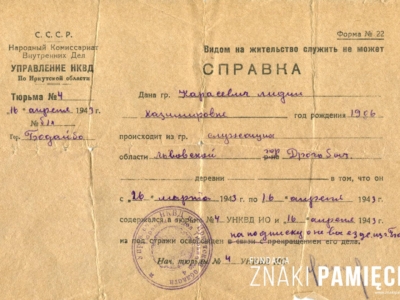 С. С. С. Р.
Народный Комиссариат
Внутренних Дел
УПРАВЛЕНИЕ НКВД
По Иркутской области
Форма № 22
Видом на жительство служить не может
СПРАВКА
Тюрьма № 4
16 апреля 1943 г.
№
гор. Бодайбо
Дана гр. Карасевич Лидии
Казимировне год рождения 1906
происходит из гр. служащих
области Львовской гор. Дрогобыч
деревни в том, что он
с 26 марта 1943 г. по 16 апреля 1943 г.
содержался в тюрьме № 4 УНКВД ИО и 16 апреля 1943 г.
из под стражи освобожден в связи с прекращением его дела.
на подписку о не выезде из
Нач. тюрьмы № 4 УНКВД ИО
ZNAKI PAMIĘCI